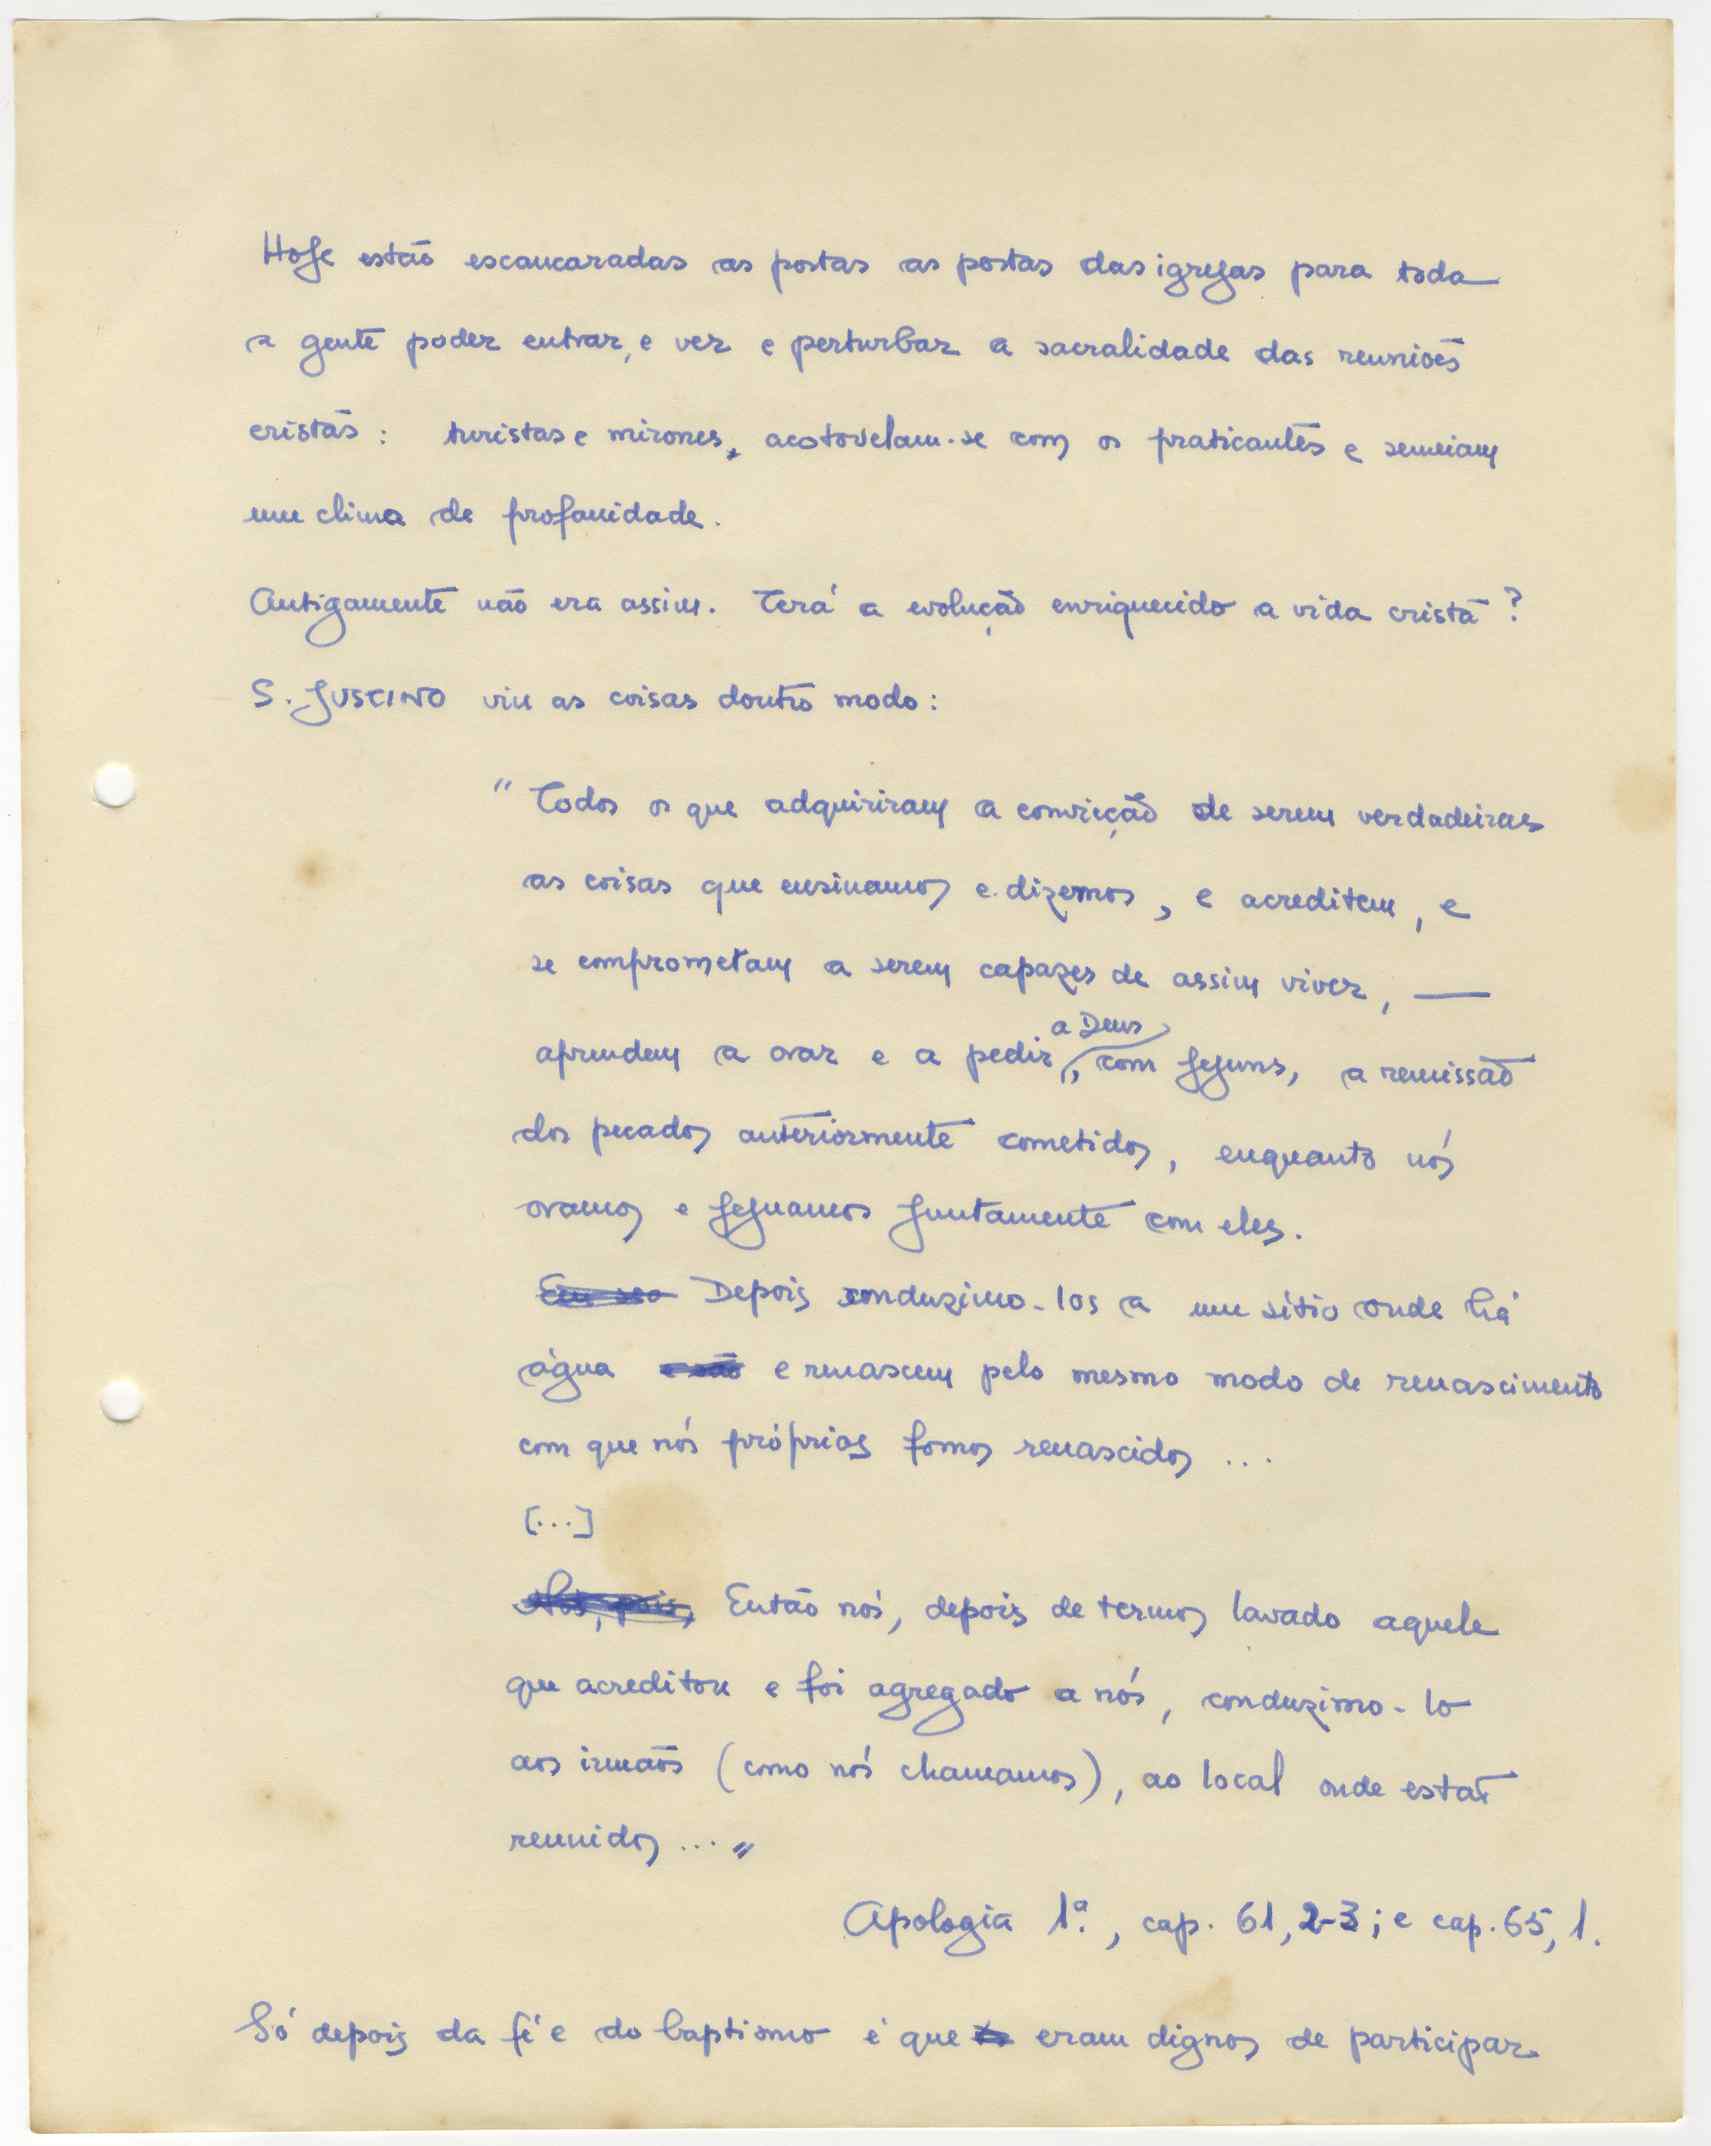 Hoje estão escancaradas as portas as portas das igrejas para toda
a gente poder entrar, e ver e perturbar a sacralidade das reuniões
cristãs: turistas e mirones, acotovelam-se com os praticantes e semeiam
um clima de profanidade.
Antigamente não era assim. Terá a evolução enriquecido a vida cristã?
S. JUSTINO viu as coisas doutro modo:
"Todos os que adquiriram a convicção de serem verdadeiras
as coisas que ensinamos e dizemos, e acreditem, e
se comprometam a serem capazes de assim viver, —
a Deus
aprendem a orar e a pedir, com jejuns, a remissão
dos pecados anteriormente cometidos, enquanto nós
oramos e jejuamos juntamente com eles.
Depois conduzimo-los a um sítio onde há
água e são e renascem pelo mesmo modo de renascimento
com que nós próprios fomos renascidos ...
[...]
Nós, pois, Então nós, depois de termos lavado aquele
que acreditou e foi agregado a nós, conduzimo-lo
aos irmãos (como nós chamamos), ao local onde estão
reunidos ..."
Apologia 1ª., cap. 61, 2-3; e cap. 65, 1.
Só depois da fé e do baptismo é que eram dignos de participar